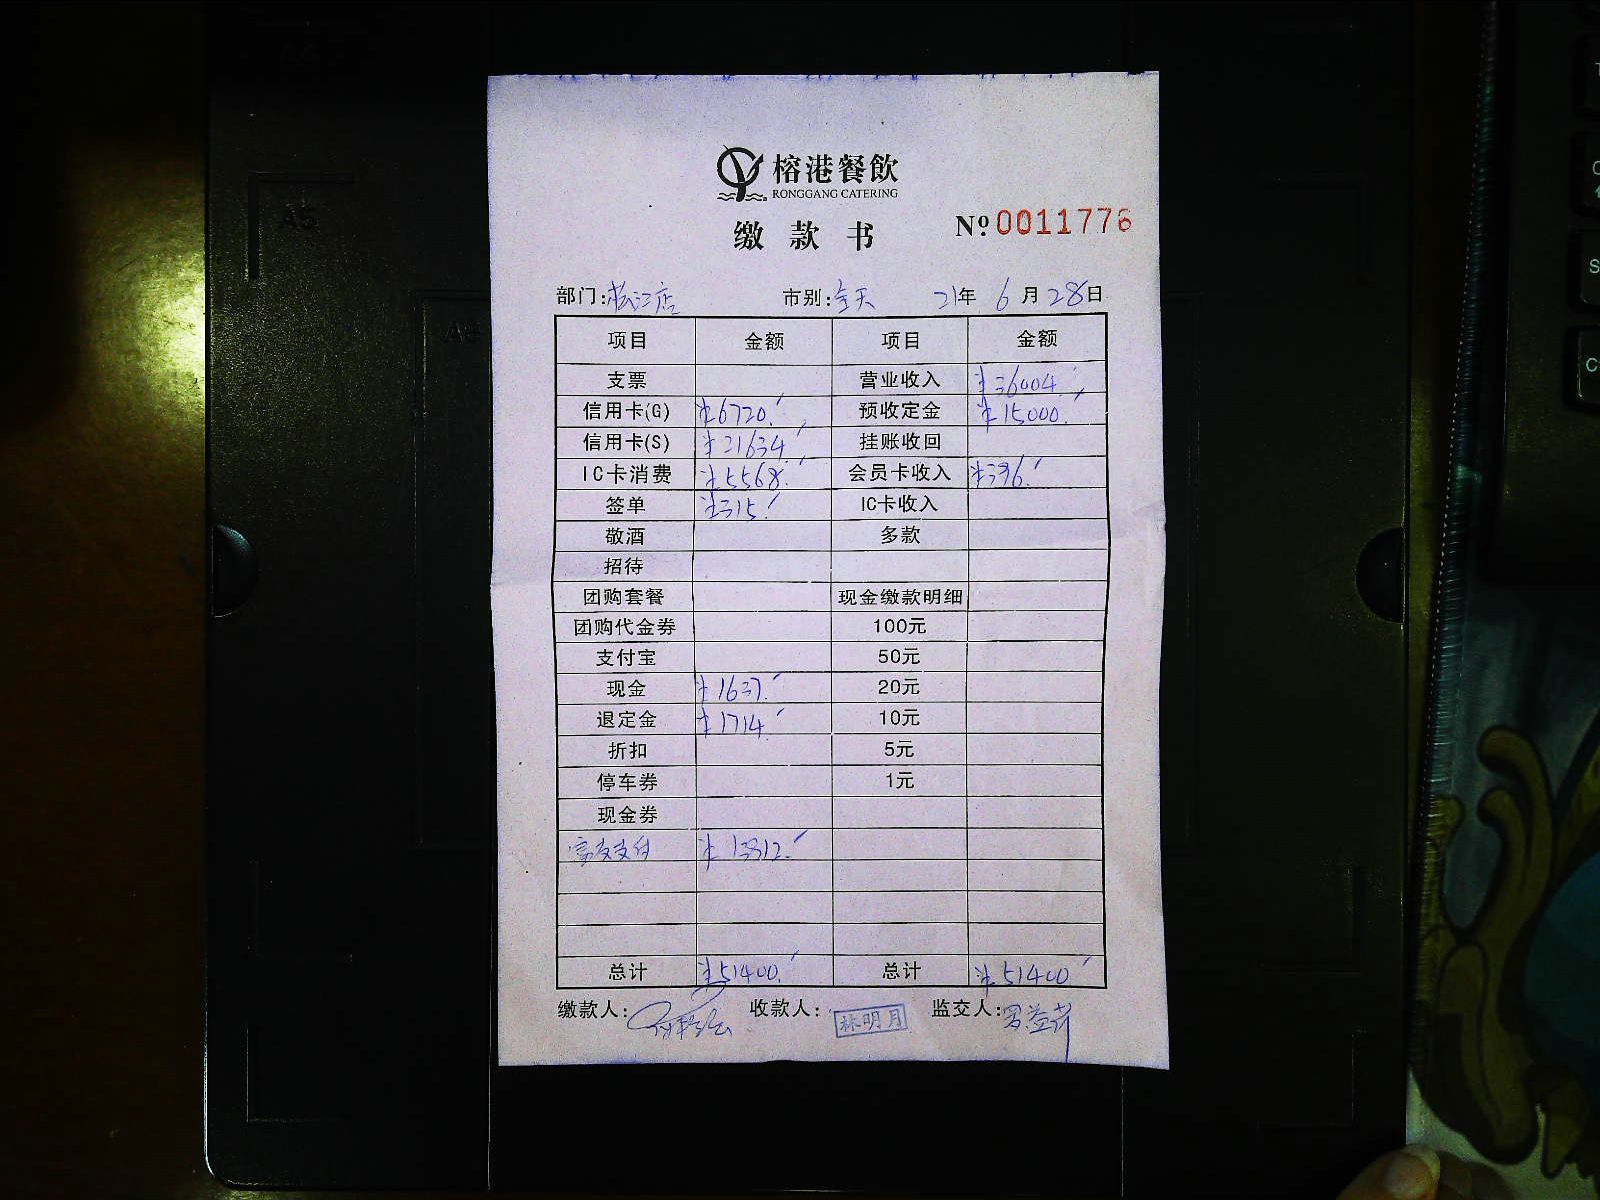 榕港餐飲
RONGGANG CATERING
缴款书
Nº 0011776
部门:松江店 市别:全天 21年 6月28日
项目 金额 项目 金额
支票 营业收入 ¥36004.
信用卡(G) ¥6720. 预收定金 ¥15000.
信用卡(S) ¥21634. 挂账收回
IC卡消费 ¥5568. 会员卡收入 ¥396.
签单 ¥315. IC卡收入
敬酒 多款
招待
团购套餐 现金缴款明细
团购代金券 100元
支付宝 50元
现金 ¥1637. 20元
退定金 ¥1714. 10元
折扣 5元
停车券 1元
现金券
富友支付 ¥13812.
总计 ¥51400. 总计 ¥51400
缴款人: 收款人: 林明月 监交人:
A5